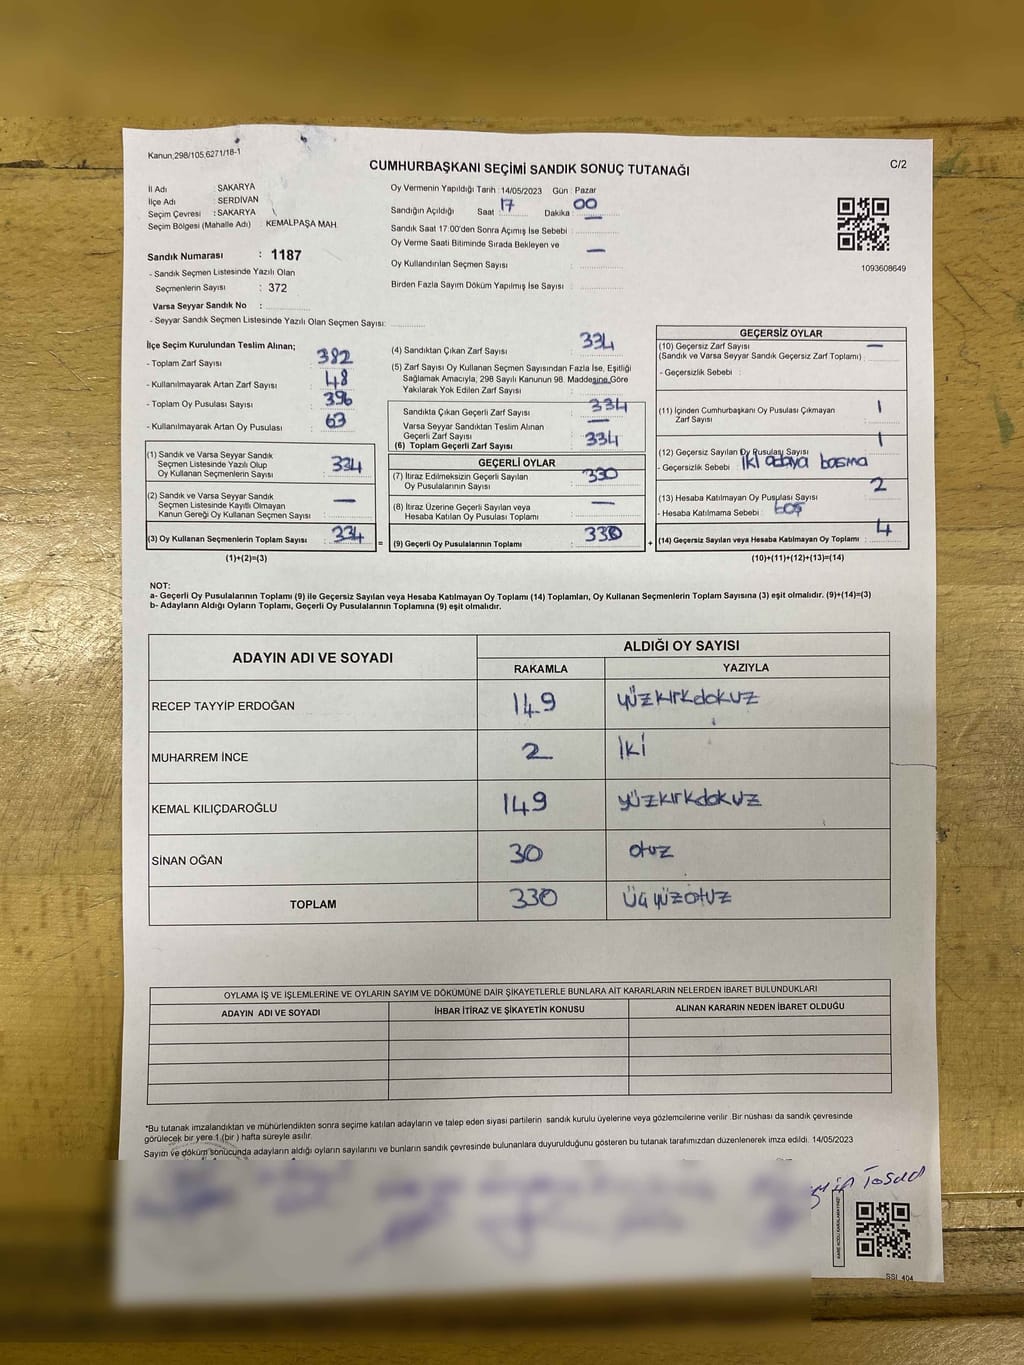 Kanun,298/105,6271/18-1
CUMHURBAŞKANI SEÇİMİ SANDIK SONUÇ TUTANAĞI
C/2
İl Adı : SAKARYA
İlçe Adı : SERDİVAN
Seçim Çevresi : SAKARYA
Seçim Bölgesi (Mahalle Adı) : KEMALPAŞA MAH.
Sandık Numarası : 1187
- Sandık Seçmen Listesinde Yazılı Olan
Seçmenlerin Sayısı : 372
Varsa Seyyar Sandık No :
- Seyyar Sandık Seçmen Listesinde Yazılı Olan Seçmen Sayısı:
Oy Vermenin Yapıldığı Tarih : 14/05/2023 Gün : Pazar
Sandığın Açıldığı Saat 17 Dakika 00
Sandık Saat 17:00'den Sonra Açımış İse Sebebi : —
Oy Verme Saati Bitiminde Sırada Bekleyen ve
Oy Kullandırılan Seçmen Sayısı : —
Birden Fazla Sayım Döküm Yapılmış İse Sayısı :
1093608649
İlçe Seçim Kurulundan Teslim Alınan;
- Toplam Zarf Sayısı : 382
- Kullanılmayarak Artan Zarf Sayısı : 48
- Toplam Oy Pusulası Sayısı : 396
- Kullanılmayarak Artan Oy Pusulası : 63
(1) Sandık ve Varsa Seyyar Sandık
Seçmen Listesinde Yazılı Olup
Oy Kullanan Seçmenlerin Sayısı : 334
(2) Sandık ve Varsa Seyyar Sandık
Seçmen Listesinde Kayıtlı Olmayan
Kanun Gereği Oy Kullanan Seçmen Sayısı : —
(3) Oy Kullanan Seçmenlerin Toplam Sayısı : 334
(1)+(2)=(3)
(4) Sandıktan Çıkan Zarf Sayısı : 334
(5) Zarf Sayısı Oy Kullanan Seçmen Sayısından Fazla İse, Eşitliği
Sağlamak Amacıyla, 298 Sayılı Kanunun 98. Maddesine Göre
Yakılarak Yok Edilen Zarf Sayısı : —
Sandıkta Çıkan Geçerli Zarf Sayısı : 334
Varsa Seyyar Sandıktan Teslim Alınan
Geçerli Zarf Sayısı : —
(6) Toplam Geçerli Zarf Sayısı : 334
GEÇERLİ OYLAR
(7) İtiraz Edilmeksizin Geçerli Sayılan
Oy Pusulalarının Sayısı : 330
(8) İtiraz Üzerine Geçerli Sayılan veya
Hesaba Katılan Oy Pusulası Toplamı : —
= (9) Geçerli Oy Pusulalarının Toplamı : 330
GEÇERSİZ OYLAR
(10) Geçersiz Zarf Sayısı —
(Sandık ve Varsa Seyyar Sandık Geçersiz Zarf Toplamı) :
- Geçersizlik Sebebi :
(11) İçinden Cumhurbaşkanı Oy Pusulası Çıkmayan
Zarf Sayısı : 1
(12) Geçersiz Sayılan Oy Pusulası Sayısı : 1
- Geçersizlik Sebebi : iki adaya basma
(13) Hesaba Katılmayan Oy Pusulası Sayısı : 2
- Hesaba Katılmama Sebebi : boş
+ (14) Geçersiz Sayılan veya Hesaba Katılmayan Oy Toplamı : 4
(10)+(11)+(12)+(13)=(14)
NOT:
a- Geçerli Oy Pusulalarının Toplamı (9) ile Geçersiz Sayılan veya Hesaba Katılmayan Oy Toplamı (14) Toplamları, Oy Kullanan Seçmenlerin Toplam Sayısına (3) eşit olmalıdır. (9)+(14)=(3)
b- Adayların Aldığı Oyların Toplamı, Geçerli Oy Pusulalarının Toplamına (9) eşit olmalıdır.
ADAYIN ADI VE SOYADI
ALDIĞI OY SAYISI
RAKAMLA YAZIYLA
RECEP TAYYİP ERDOĞAN 149 yüzkırkdokuz
MUHARREM İNCE 2 iki
KEMAL KILIÇDAROĞLU 149 yüzkırkdokuz
SİNAN OĞAN 30 otuz
TOPLAM 330 üçyüzotuz
OYLAMA İŞ VE İŞLEMLERİNE VE OYLARIN SAYIM VE DÖKÜMÜNE DAİR ŞİKAYETLERLE BUNLARA AİT KARARLARIN NELERDEN İBARET BULUNDUKLARI
ADAYIN ADI VE SOYADI İHBAR İTİRAZ VE ŞİKAYETİN KONUSU ALINAN KARARIN NEDEN İBARET OLDUĞU
*Bu tutanak imzalandıktan ve mühürlendikten sonra seçime katılan adayların ve talep eden siyasi partilerin sandık kurulu üyelerine veya gözlemcilerine verilir .Bir nüshası da sandık çevresinde
görülecek bir yere 1 (bir ) hafta süreyle asılır.
Sayım ve döküm sonucunda adayların aldığı oyların sayılarını ve bunların sandık çevresinde bulunanlara duyurulduğunu gösteren bu tutanak tarafımızdan düzenlenerek imza edildi. 14/05/2023
SSI_404